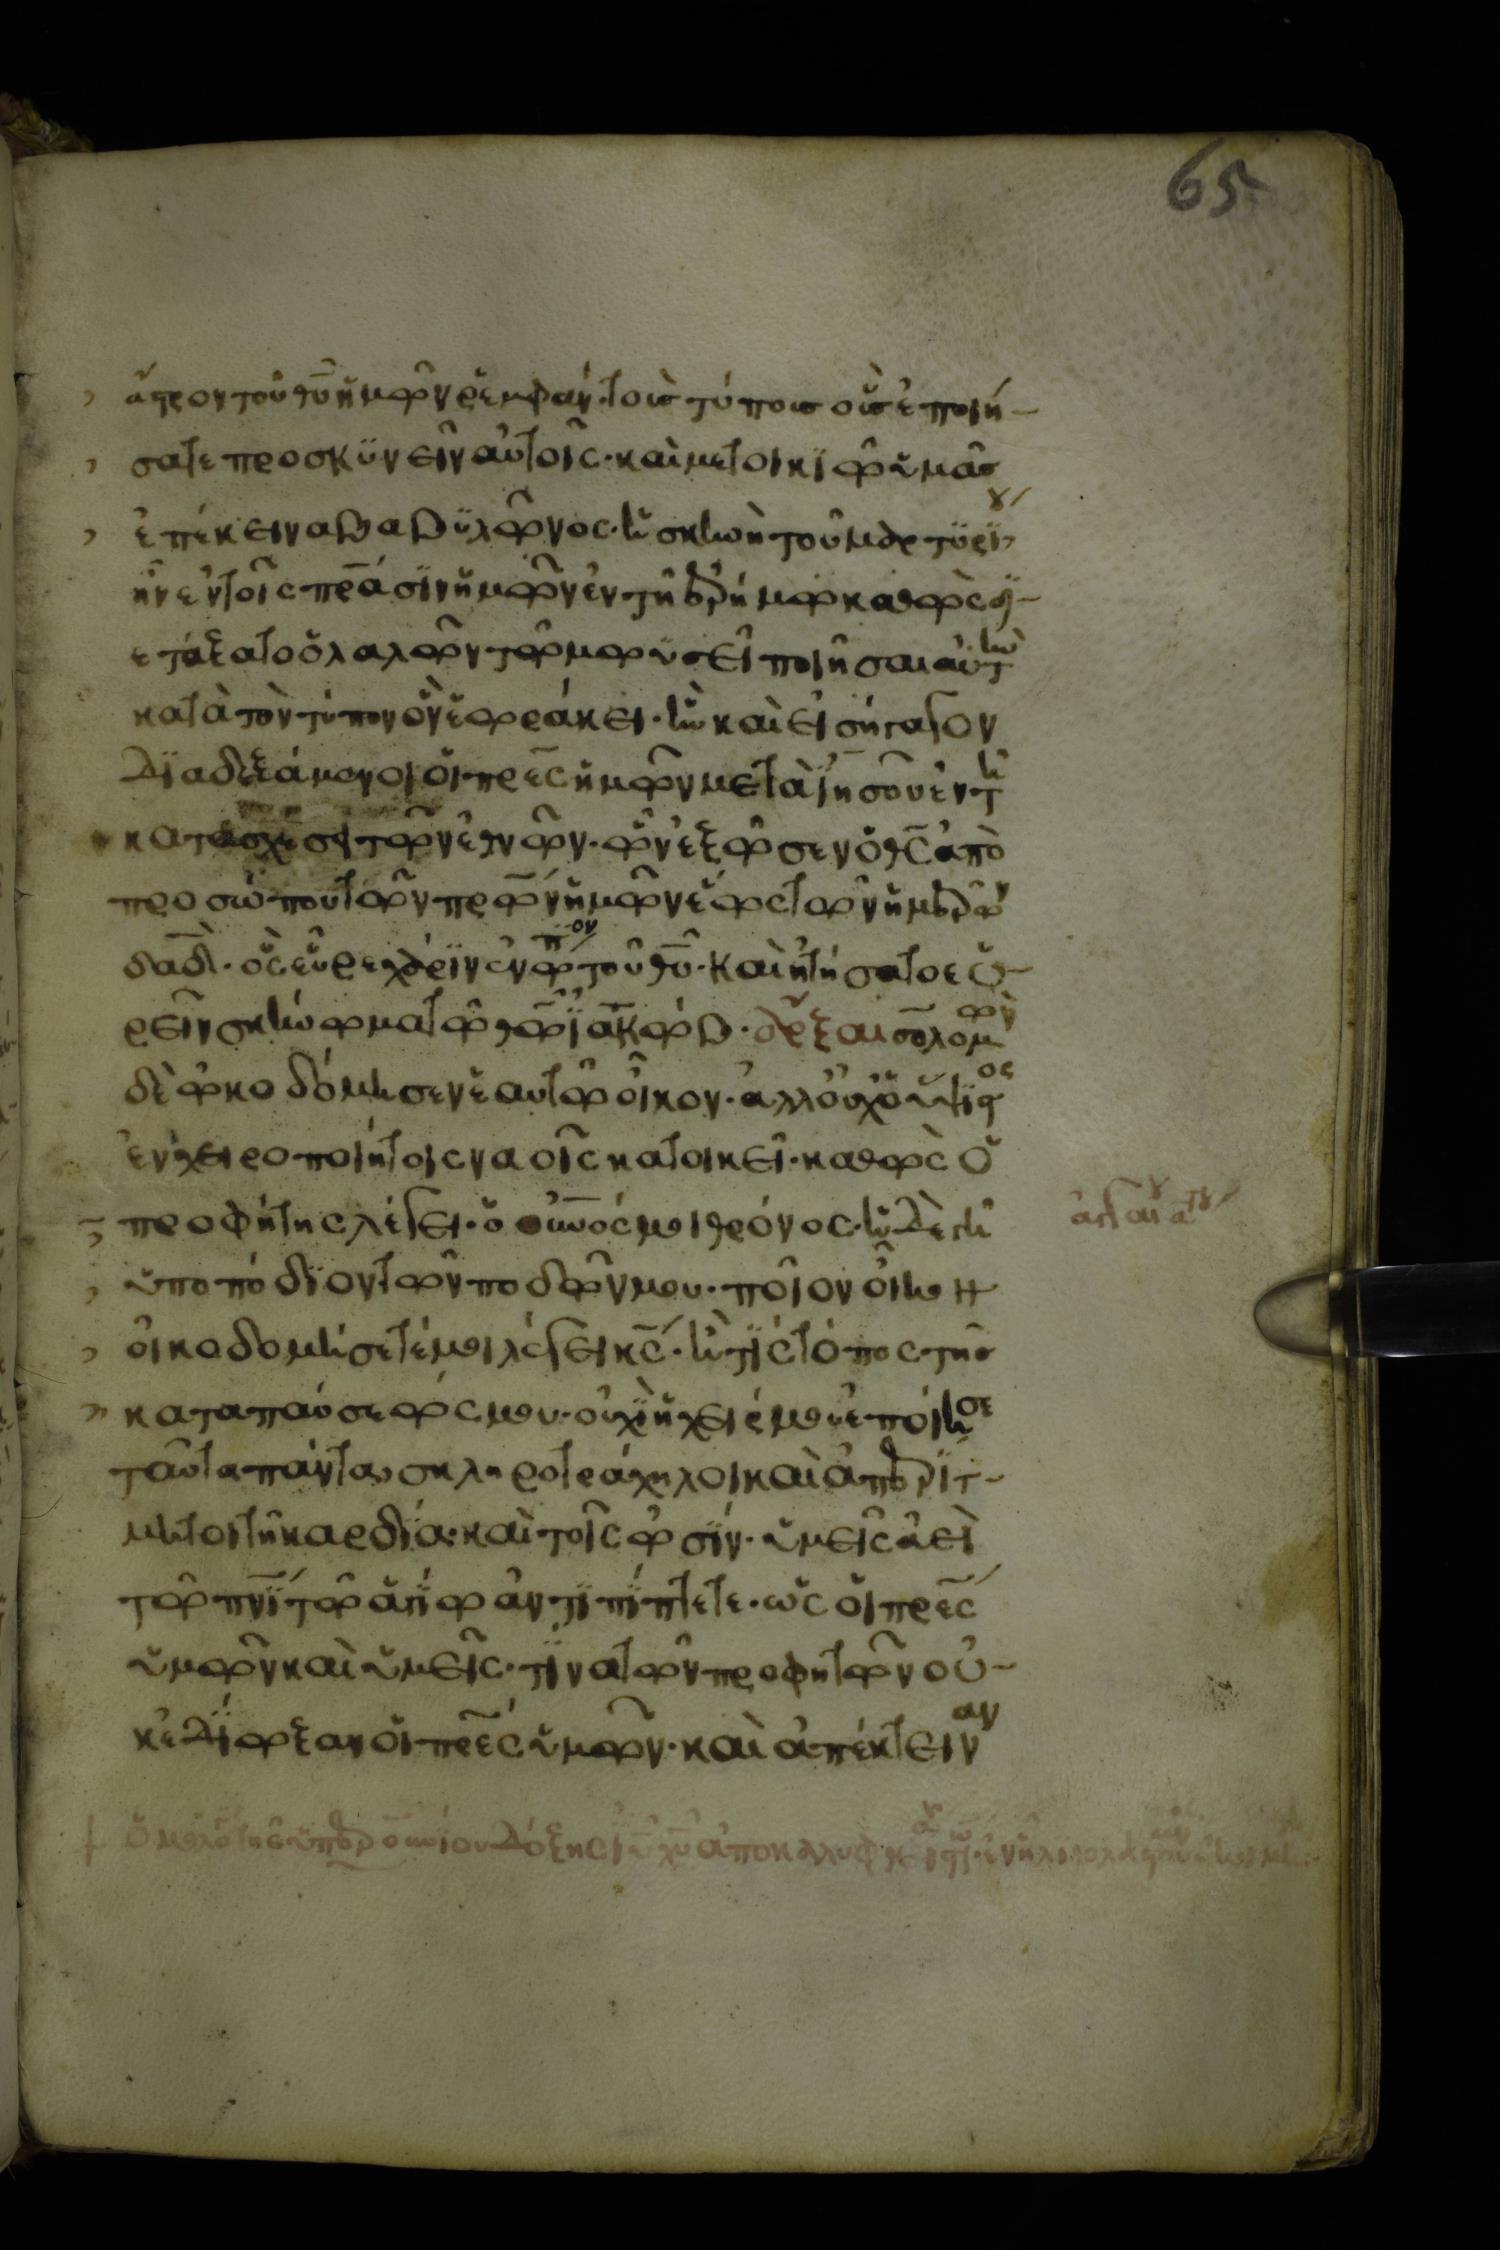 65
ἄστρον τοῦ θῦ ἡμῶν ῥεμφάν· τοὺς τύπους οὓς ἐποιή-
σατε προσκυνεῖν αὐτοῖς· καὶ μετοικιῶ ὑμᾶς
ἐπέκεινα βαβυλῶνος· ἡ σκηνὴ τοῦ μαρτυρίου
ἦν ἐν τοῖς πράσιν ἡμῶν ἐν τῆ ἐρήμω καθὼς δι-
ετάξατο ὁ λαλῶν τῶ μωυσεῖ ποιῆσαι αὐτὴν
κατὰ τὸν τύπον ὃν ἑωράκει· ἣν καὶ εἰσήγαγον
διαδεξάμενοι οἱ πρες ἡμῶν μετὰ ἰησοῦ ἐν τῆ
κατασχέσει τῶν ἐθνῶν· ὧν ἐξῶσεν ὁ θς ἀπὸ
προσώπου τῶν πρων ἡμῶν ἕως τῶν ἡμερῶν
δαδ· ὃς εὗρε χάριν ἐνώπιον τοῦ θῦ· καὶ ἠτήσατο εὑ-
ρεῖν σκήνωμα τῶ θῶ ἰακώβ· σολομὼν
δὲ ὠκοδόμησεν ἑαυτῶ οἶκον· ἀλλ' οὐχ ὁ ὕψιστος
ἐν χειροποιήτοις ναοῖς κατοικεῖ· καθὼς ὁ
προφήτης λέγει· ὁ οὐνός μοι θρόνος· ἡ δὲ γῆ
ὑποπόδιον τῶν ποδῶν μου· ποῖον οἶκον
οἰκοδομήσετέ μοι λέγει κς· ἢ τίς τόπος τῆς
καταπαύσεώς μου· οὐχὶ ἡ χείρ μου ἐποίησε
ταῦτα πάντα· σκληροτράχηλοι καὶ ἀπερίτ-
μητοι τῆ καρδία· καὶ τοῖς ὠσίν· ὑμεῖς ἀεὶ
τῶ πνι τῶ ἁγίω ἀντιπίπτετε· ὡς οἱ πρες
ὑμῶν καὶ ὑμεῖς· τίνα τῶν προφητῶν οὐ-
κ ἐδίωξαν οἱ πρες ὑμῶν· καὶ ἀπέκτειναν